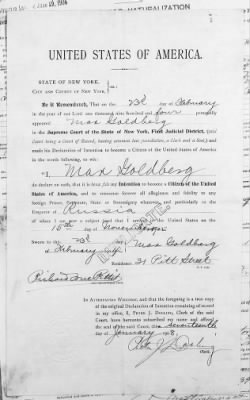 NATURALIZATION
UNITED STATES OF AMERICA.
STATE OF NEW YORK,
CITY AND COUNTY OF NEW YORK,
Be it Remembered, That on the February
in the year of our Lord one thousand nine hundred and four personally
appeared Max Goldberg
in the Supreme Court of the State of New York, First Judicial District, (said
Court being a Court of Record, having common law jurisdiction, a Clerk and a Seal) and
made his Declaration of Intention to become a Citizen of the United States of America
in the words following, to wit:
I, Max Goldberg
do declare on oath, that it is bona fide my Intention to become a Citizen of the
United States of America, and to renounce forever all allegiance and fidelity to any
foreign Prince, Potentate, State or Sovereignty whatever, and particularly to the
Emperor of Russia
of whom I am now a subject and that I arrived in the United States on the
day of
Sworn to Max Goldberg
of February
Residence 31 Pitt Street
IN ATTESTATION WHEREOF, and that the foregoing is a true copy
of the original Declaration of Intention remaining of record
in my office, I, PETER J. DOOLING, Clerk of the said
Court, have hereunto subscribed my name and affixed
the seal of the said Court, this seventeenth
day of January
Peter J. Dooling
Clerk.